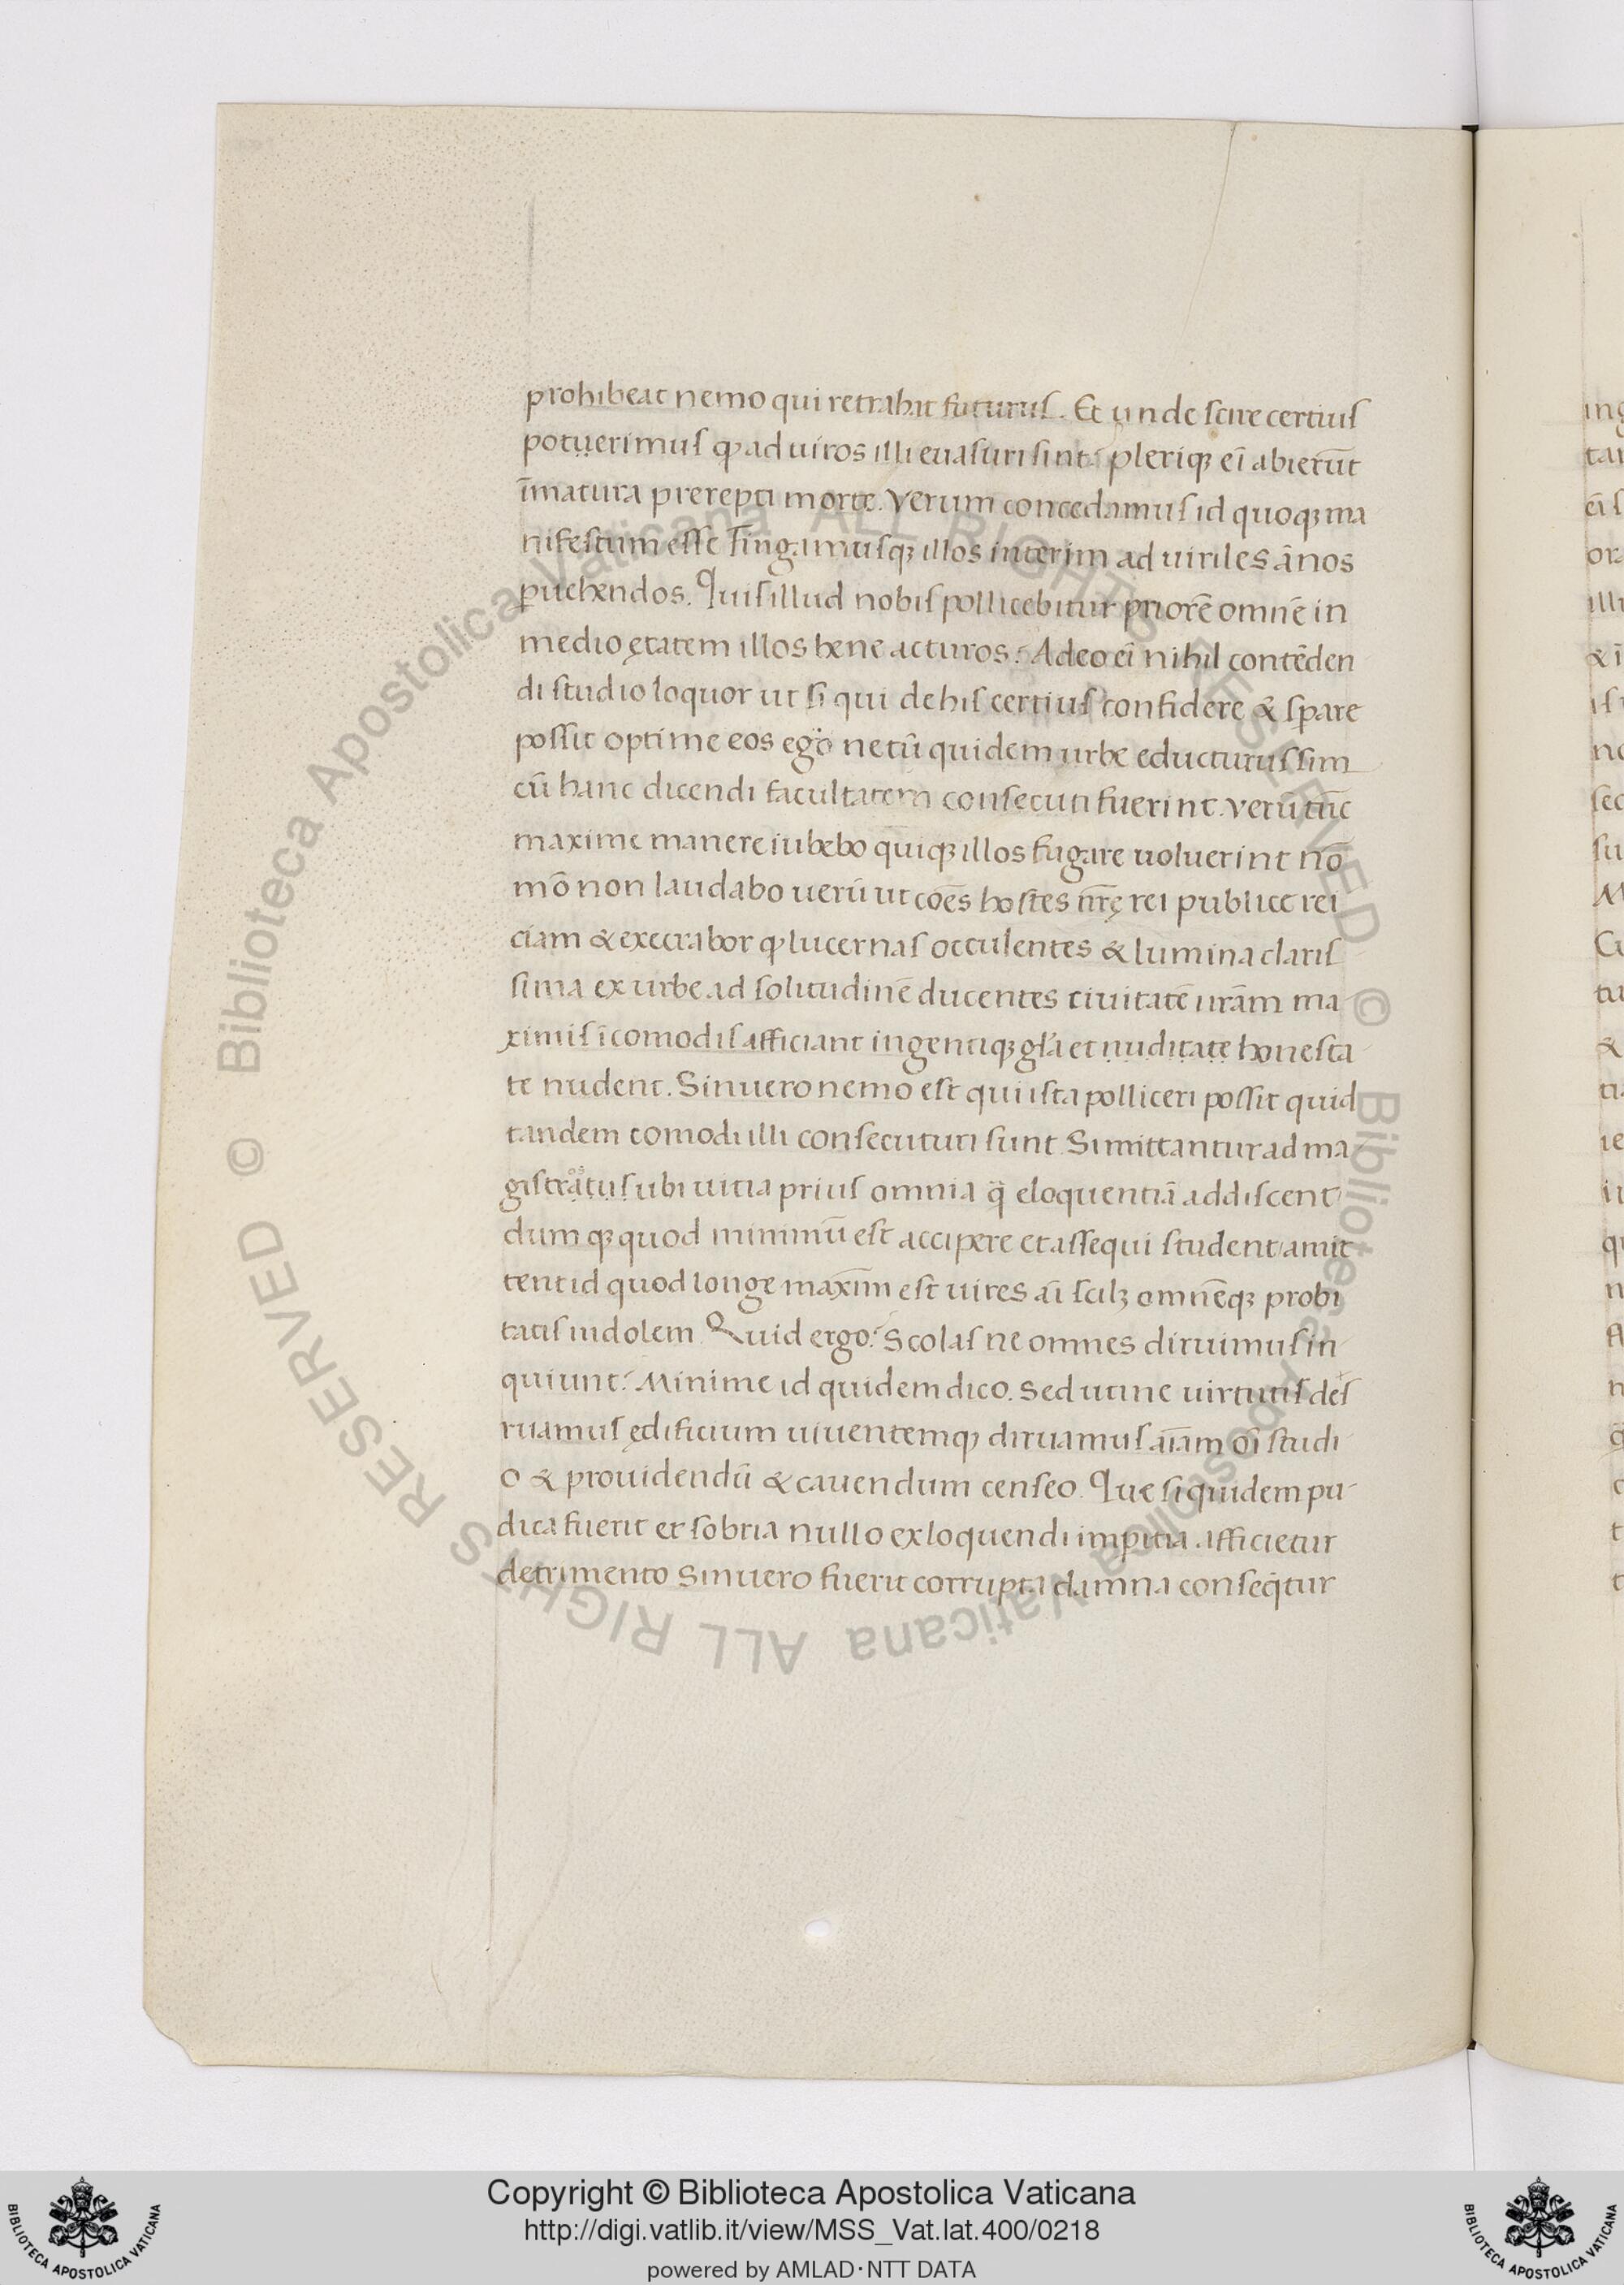 prohibeat nemo qui retrahat futurus. Et unde scire certius
potuerimus ꝙ ad uiros illi euasuri sint? pleriqꝫ ei̅ abieru̅t
i̅matura prerepti morte. Verum concedamus id quoqꝫ ma
nifestum esse Fingamusqꝫ illos interim ad uiriles a̅nos
ꝑuehendos. Quis illud nobis pollicebitur priore̅ omne̅ in
medio ętatem illos bene acturos? Adeo ei̅ nihil conte̅den
di studio loquor ut si qui de his certius confidere & sꝑare
possit optime eos ego ne tu̅ quidem urbe educturus sim
cu̅ hanc dicendi facultatem consecuti fuerint. Veru̅ tu̅c
maxime manere iubebo quiqꝫ illos fugare uoluerint no̅
mo̅ non laudabo ueru̅ ut co̅es hostes nr̅ę rei publice rei
ciam & execrabor ꝙ lucernas occulentes & lumina claris
sima ex urbe ad solitudine̅ ducentes ciuitate̅ nr̅am ma
ximis i̅comodis afficiant ingentiqꝫ gl̅a et nuditate honesta
te nudent. Sin uero nemo est qui ista polliceri possit quid
tandem comodi illi consecuturi sunt Si mittantur ad ma
gistratus ubi uitia prius omnia q̅ eloquentia̅ addiscent
dumqꝫ quod minimu̅ est accipere et assequi student amit
tent id quod longe maxim̅ est uires ai̅ scilꝫ omne̅qꝫ probi
tatis indolem Quid ergo? Scolas ne omnes diruimus in
quiunt? Minime id quidem dico. Sed uti ne uirtutis des
ruamus ędificium uiuentemqꝫ diruamus ai̅am oi̅ studi
o & prouidendu̅ & cauendum censeo. Que siquidem pu
dica fuerit et sobria nullo ex loquendi imꝑitia afficietur
detrimento Sin uero fuerit corrupta damna conseq̅tur
Copyright © Biblioteca Apostolica Vaticana
http://digi.vatlib.it/view/MSS_Vat.lat.400/0218
powered by AMLAD·NTT DATA